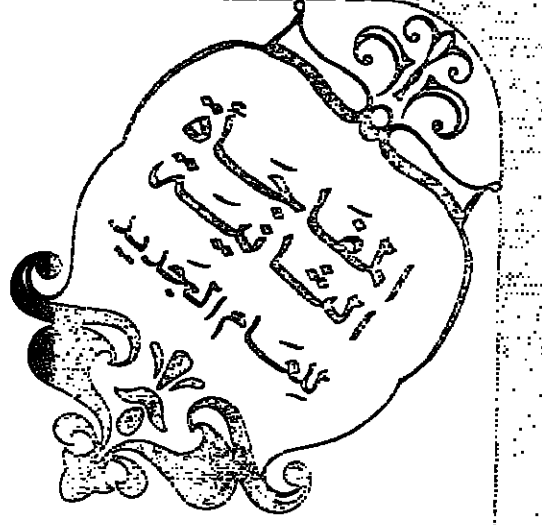 المفاجأة
الثانية
للعام الجديد